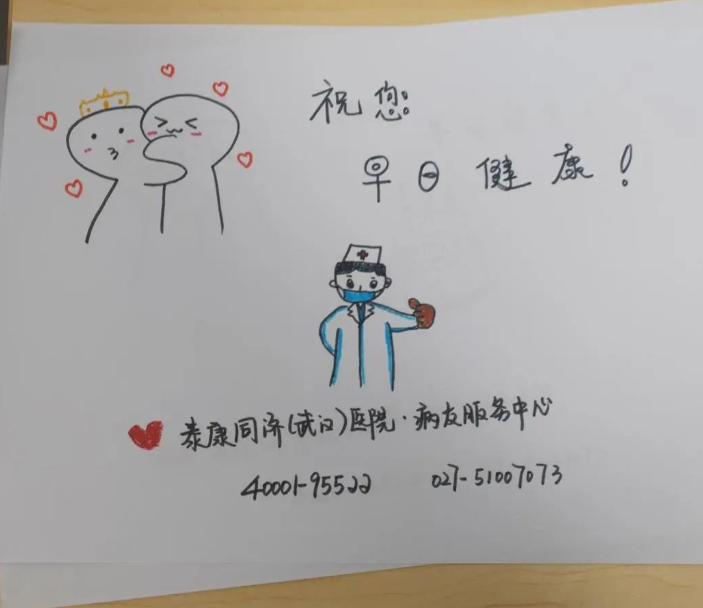 祝您
早日健康！
泰康同济(武汉)医院·病友服务中心
40001-95522 027-51007073